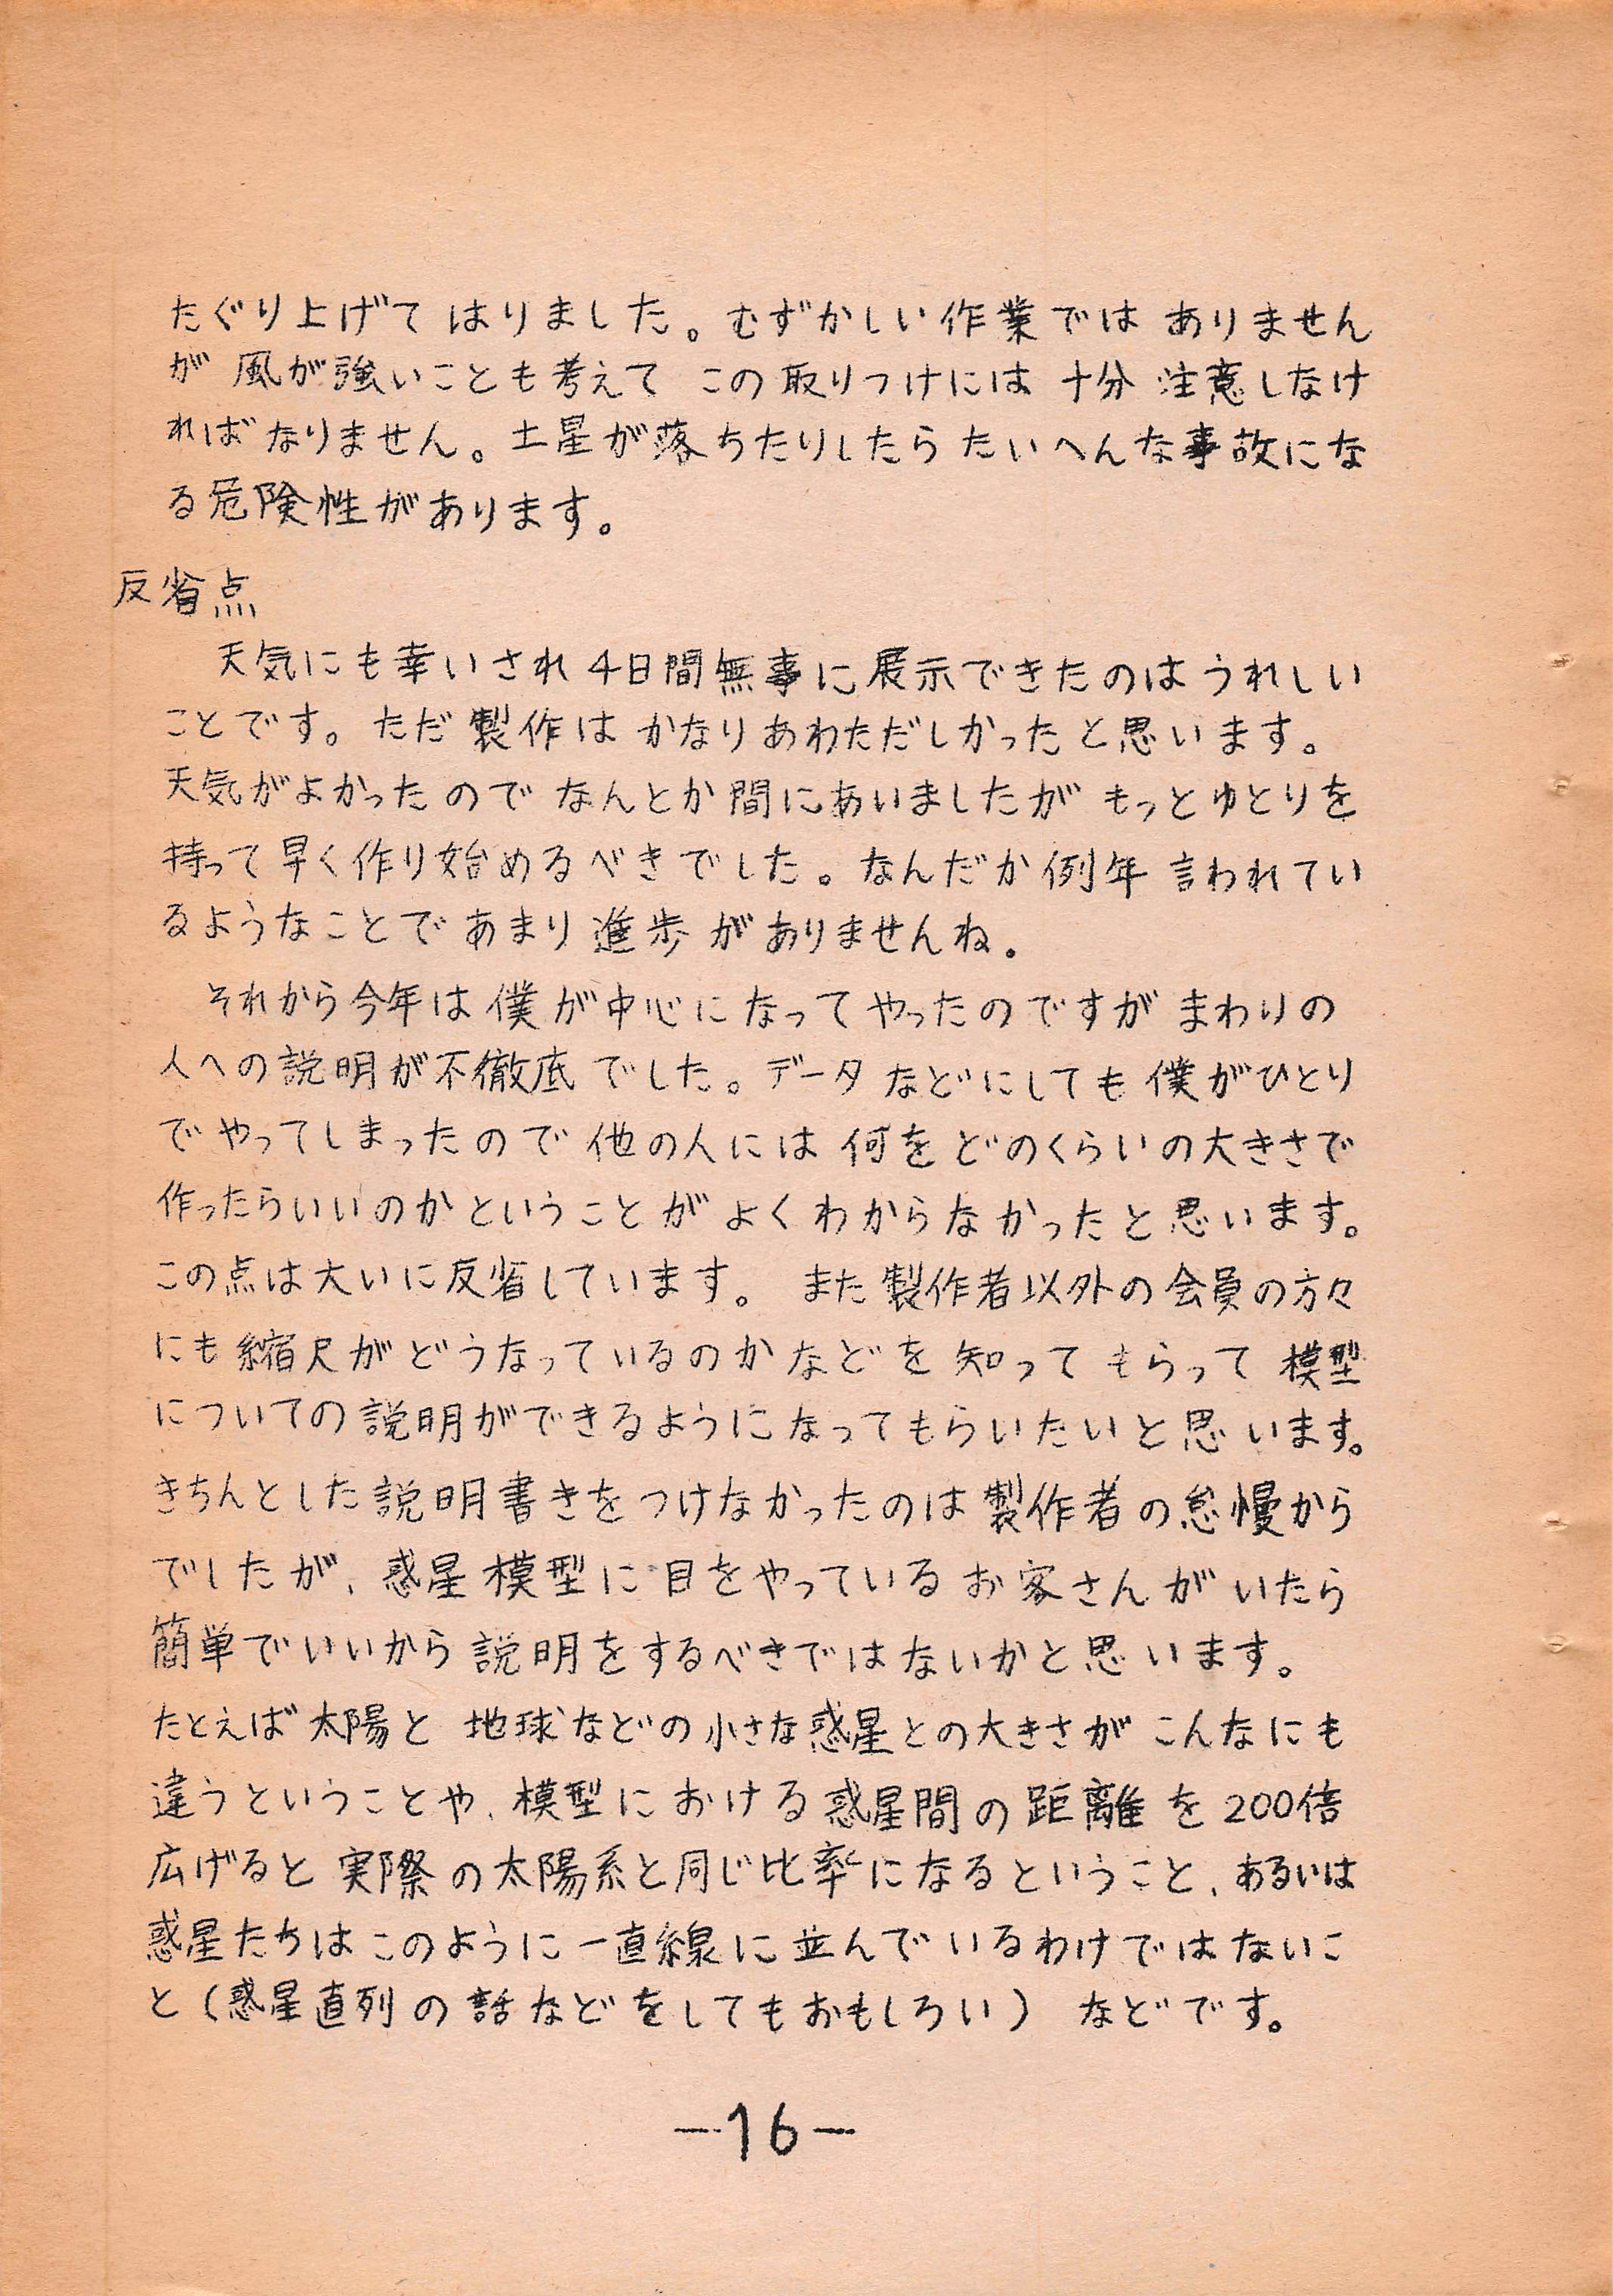 たぐり上げて はりました。むずかしい作業では ありません
が 風が強いことも考えて この取りつけには 十分 注意しなけ
ればなりません。土星が落ちたりしたら たいへんな事故にな
る危険性があります。
反省点
天気にも幸いされ4日間無事に展示できたのは うれしい
ことです。ただ製作は かなりあわただしかったと思います。
天気がよかったので なんとか間にあいましたが もっとゆとりを
持って早く作り始めるべきでした。なんだか例年 言われてい
るようなことであまり進歩がありませんね。
それから今年は僕が中心になってやったのですが まわりの
人への説明が不徹底でした。データなどにしても僕がひとり
でやってしまったので他の人には何をどのくらいの大きさで
作ったらいいのかということがよくわからなかったと思います。
この点は大いに反省しています。 また製作者以外の会員の方々
にも縮尺がどうなっているのかなどを知ってもらって模型
についての説明ができるようになってもらいたいと思います。
きちんとした説明書きをつけなかったのは製作者の怠慢から
でしたが、惑星模型に目をやっているお客さんがいたら
簡単でいいから説明をするべきではないかと思います。
たとえば太陽と 地球などの小さな惑星との大きさが こんなにも
違うということや、模型における惑星間の距離を200倍
広げると実際の太陽系と同じ比率になるということ、あるいは
惑星たちはこのように一直線に並んでいるわけではないこ
と(惑星直列の話などをしてもおもしろい) などです。
-16-